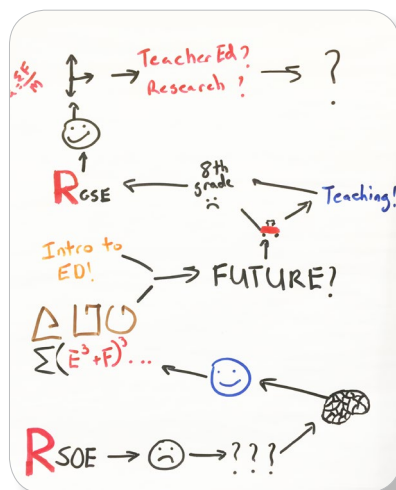 Teacher Ed?
Research?
?
RGSE
8th
grade
Teaching!
Intro to
ED!
FUTURE?
Σ(E³+F)³...
RSOE
???